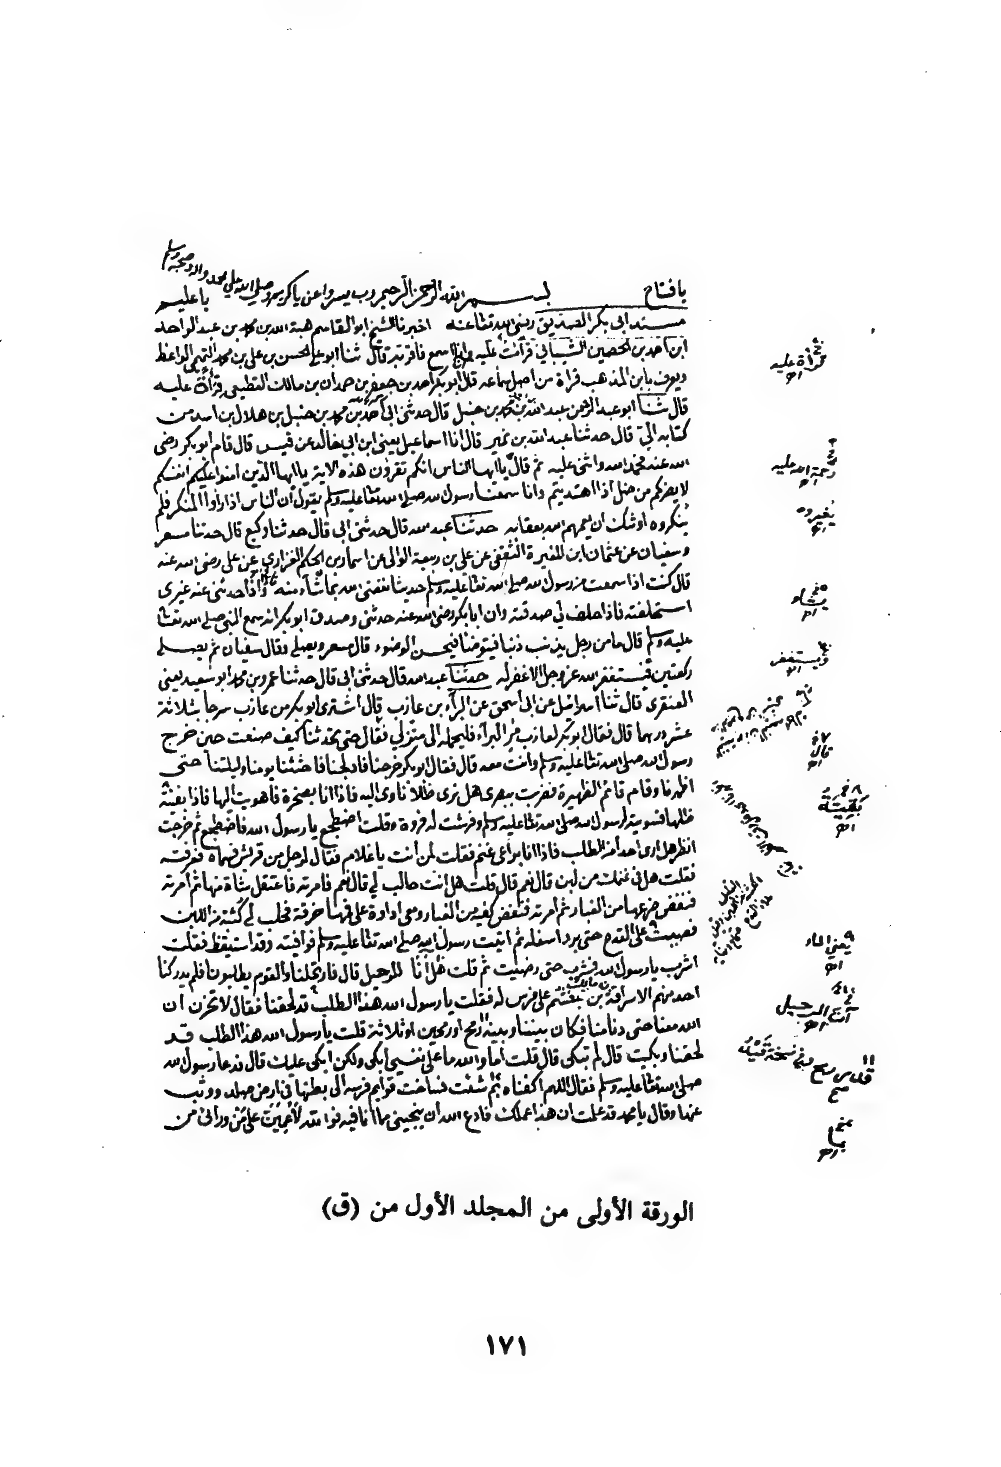 يا فتاح بسم الله الرحمن الرحيم رب يسر واعن يا كريم وصلى الله على محمد واله وصحبه وسلم يا عليم
مسند ابى بكر الصديق رضى الله تعالى عنه اخبرنا الشيخ ابو القاسم هبة الله بن محمد بن عبد الواحد
ابن احمد بن الحصين الشيبانى قرأت عليه وانا اسمع فاقر به قال ثنا ابو على الحسن بن على بن محمد التميمى الواعظ
ويعرف بابن المذهب قراة من اصل سماعه قال ابو بكر احمد بن جعفر بن حمدان بن مالك القطيعى قرأة عليه
قال ثنا ابو عبد الرحمن عبد الله بن احمد بن محمد بن حنبل قال حدثنى ابى احمد بن محمد بن حنبل بن هلال بن اسد من
كتابه الى قال حدثنا عبد الله بن نمير قال انا اسماعيل يعنى ابن ابى خالد عن قيس قال قام ابو بكر رضى
الله عنه فحمد الله واثنى عليه ثم قال ياايها الناس انكم تقرؤن هذه الاية ياايها الذين امنوا عليكم انفسكم
لا يضركم من ضل اذا اهتديتم وانا سمعنا رسول الله صلى الله تعالى عليه وسلم يقول ان الناس اذا راوا المنكر فلم
ينكروه اوشك ان يعمهم الله بعقابه حدثنا عبد الله قال حدثنى ابى قال حدثنا وكيع قال حدثنا مسعر
وسفيان عن عثمان ابن المغيرة الثقفى عن على بن ربيعة الوالى عن اسما بن الحكم الفزارى عن على رضى الله عنه
قال كنت اذا سمعت من رسول الله صلى الله تعالى عليه وسلم حديثا نفعنى الله بما شاء منه واذا حدثنى عنه غيرى
استحلفته فاذا حلف لى صدقته وان ابا بكر رضى الله عنه حدثنى وصدق ابو بكر انه سمع النبى صلى الله تعالى
عليه وسلم قال ما من رجل يذنب ذنبا فيتوضا فيحسن الوضوء قال مسعر ويصلى وقال سفيان ثم يصلى
ركعتين فيستغفر الله عز وجل الا غفر له حدثنا عبد الله قال حدثنى ابى قال حدثنا عمرو بن محمد ابو سعيد يعنى
العنقزى قال ثنا اسرائيل عن ابى اسحق عن البرآء بن عازب قال اشترى ابو بكر من عازب سرجا بثلاثة
عشر درهما قال فقال ابو بكر لعازب مر البرآء فليحمله الى منزلى فقال حتى تحدثنا كيف صنعت حين خرج
رسول الله صلى الله تعالى عليه وسلم وانت معه قال فقال ابو بكر خرجنا فادلجنا فاحثثنا يومنا وليلتنا حتى
اظهرنا وقام قائم الظهيرة فضربت ببصرى هل نرى ظلا ناوى اليه فاذا انا بصخرة فاهويت اليها فاذا بقية
ظلها فسويته لرسول الله صلى الله تعالى عليه وسلم وفرشت له فروة وقلت اضطجع يا رسول الله فاضطجع ثم خرجت
انظر هل ارى احدا من الطلب فاذا انا براعى غنم فقلت لمن انت يا غلام فقال لرجل من قريش فسماه فعرفته
فقلت هل فى غنمك من لبن قال نعم قال قلت هل انت حالب لى قال نعم فامرته فاعتقل شاة منها ثم امرته
فنفض ضرعها من الغبار ثم امرته فنفض كفيه من الغبار ومعى اداوة على فمها خرقة فحلب لى كثبة من اللبن
فصببت على القدح حتى برد اسفله ثم اتيت رسول الله صلى الله تعالى عليه وسلم فوافيته وقد استيقظ فقلت
اشرب يا رسول الله فشرب حتى رضيت ثم قلت هل انا للرحيل قال فارتحلنا والقوم يطلبون فلم يدركنا
احد منهم الا سراقة بن مالك بن جعشم على فرس له فقلت يا رسول الله هذا الطلب قد لحقنا فقال لا تحزن ان
الله معنا حتى دنا منا فكان بيننا وبينه رمح او رمحين او ثلاثة قلت يا رسول الله هذا الطلب قد
لحقنا وبكيت قال لم تبكى قال قلت اما والله ما على نفسى ابكى ولكن ابكى عليك قال فدعا رسول الله
صلى الله تعالى عليه وسلم فقال اللهم اكفناه بم شئت فساخت قوايم فرسه الى بطنها فى ارض صلد ووثب
عنها وقال يا محمد قد علمت ان هذا عملك فادع الله ان ينجينى مما انا فيه فوالله لاعمين على من ورائى من
قرأة عليه
رحمة الله عليه
يغيروه
يشاء
فيستغفر
قال
بقيته
يعنى الماء
انى الرحيل
مما
الورقة الأولى من المجلد الأول من (ق)
١٧١